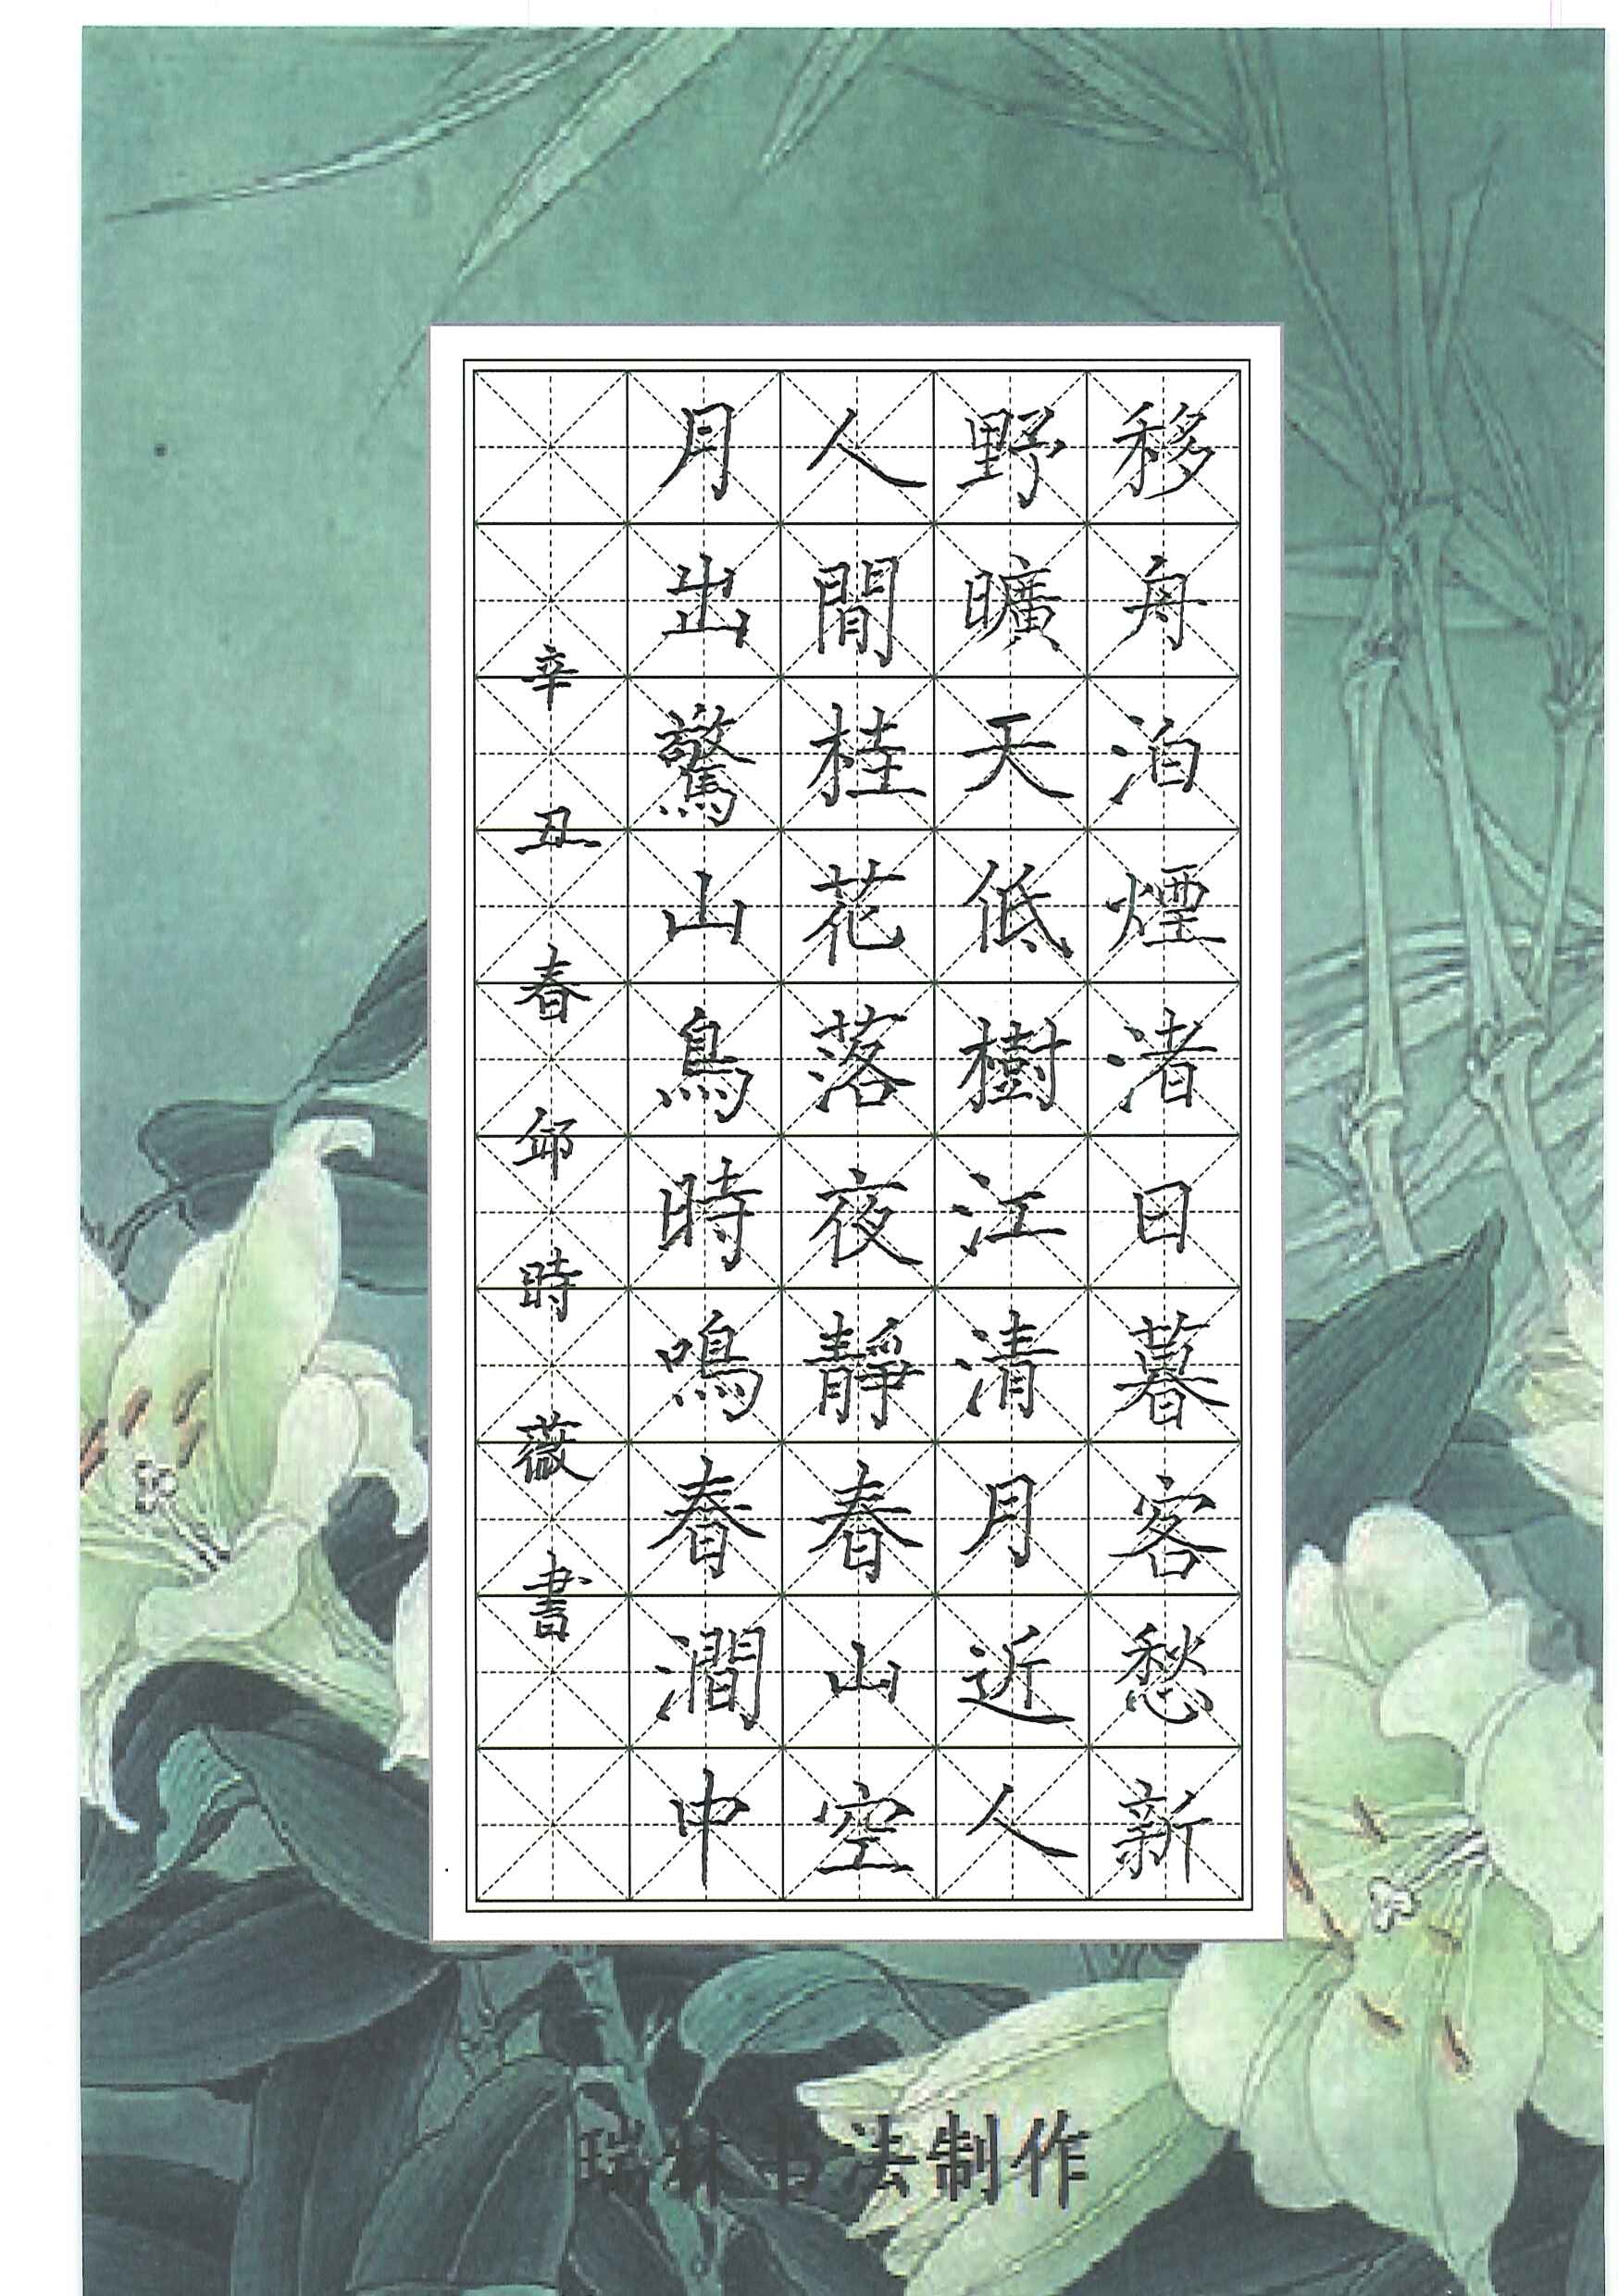 移舟泊煙渚日暮客愁新
野曠天低樹江清月近人
人閒桂花落夜靜春山空
月出驚山鳥時鳴春澗中
辛丑春邱時薇書
瑞林书法制作